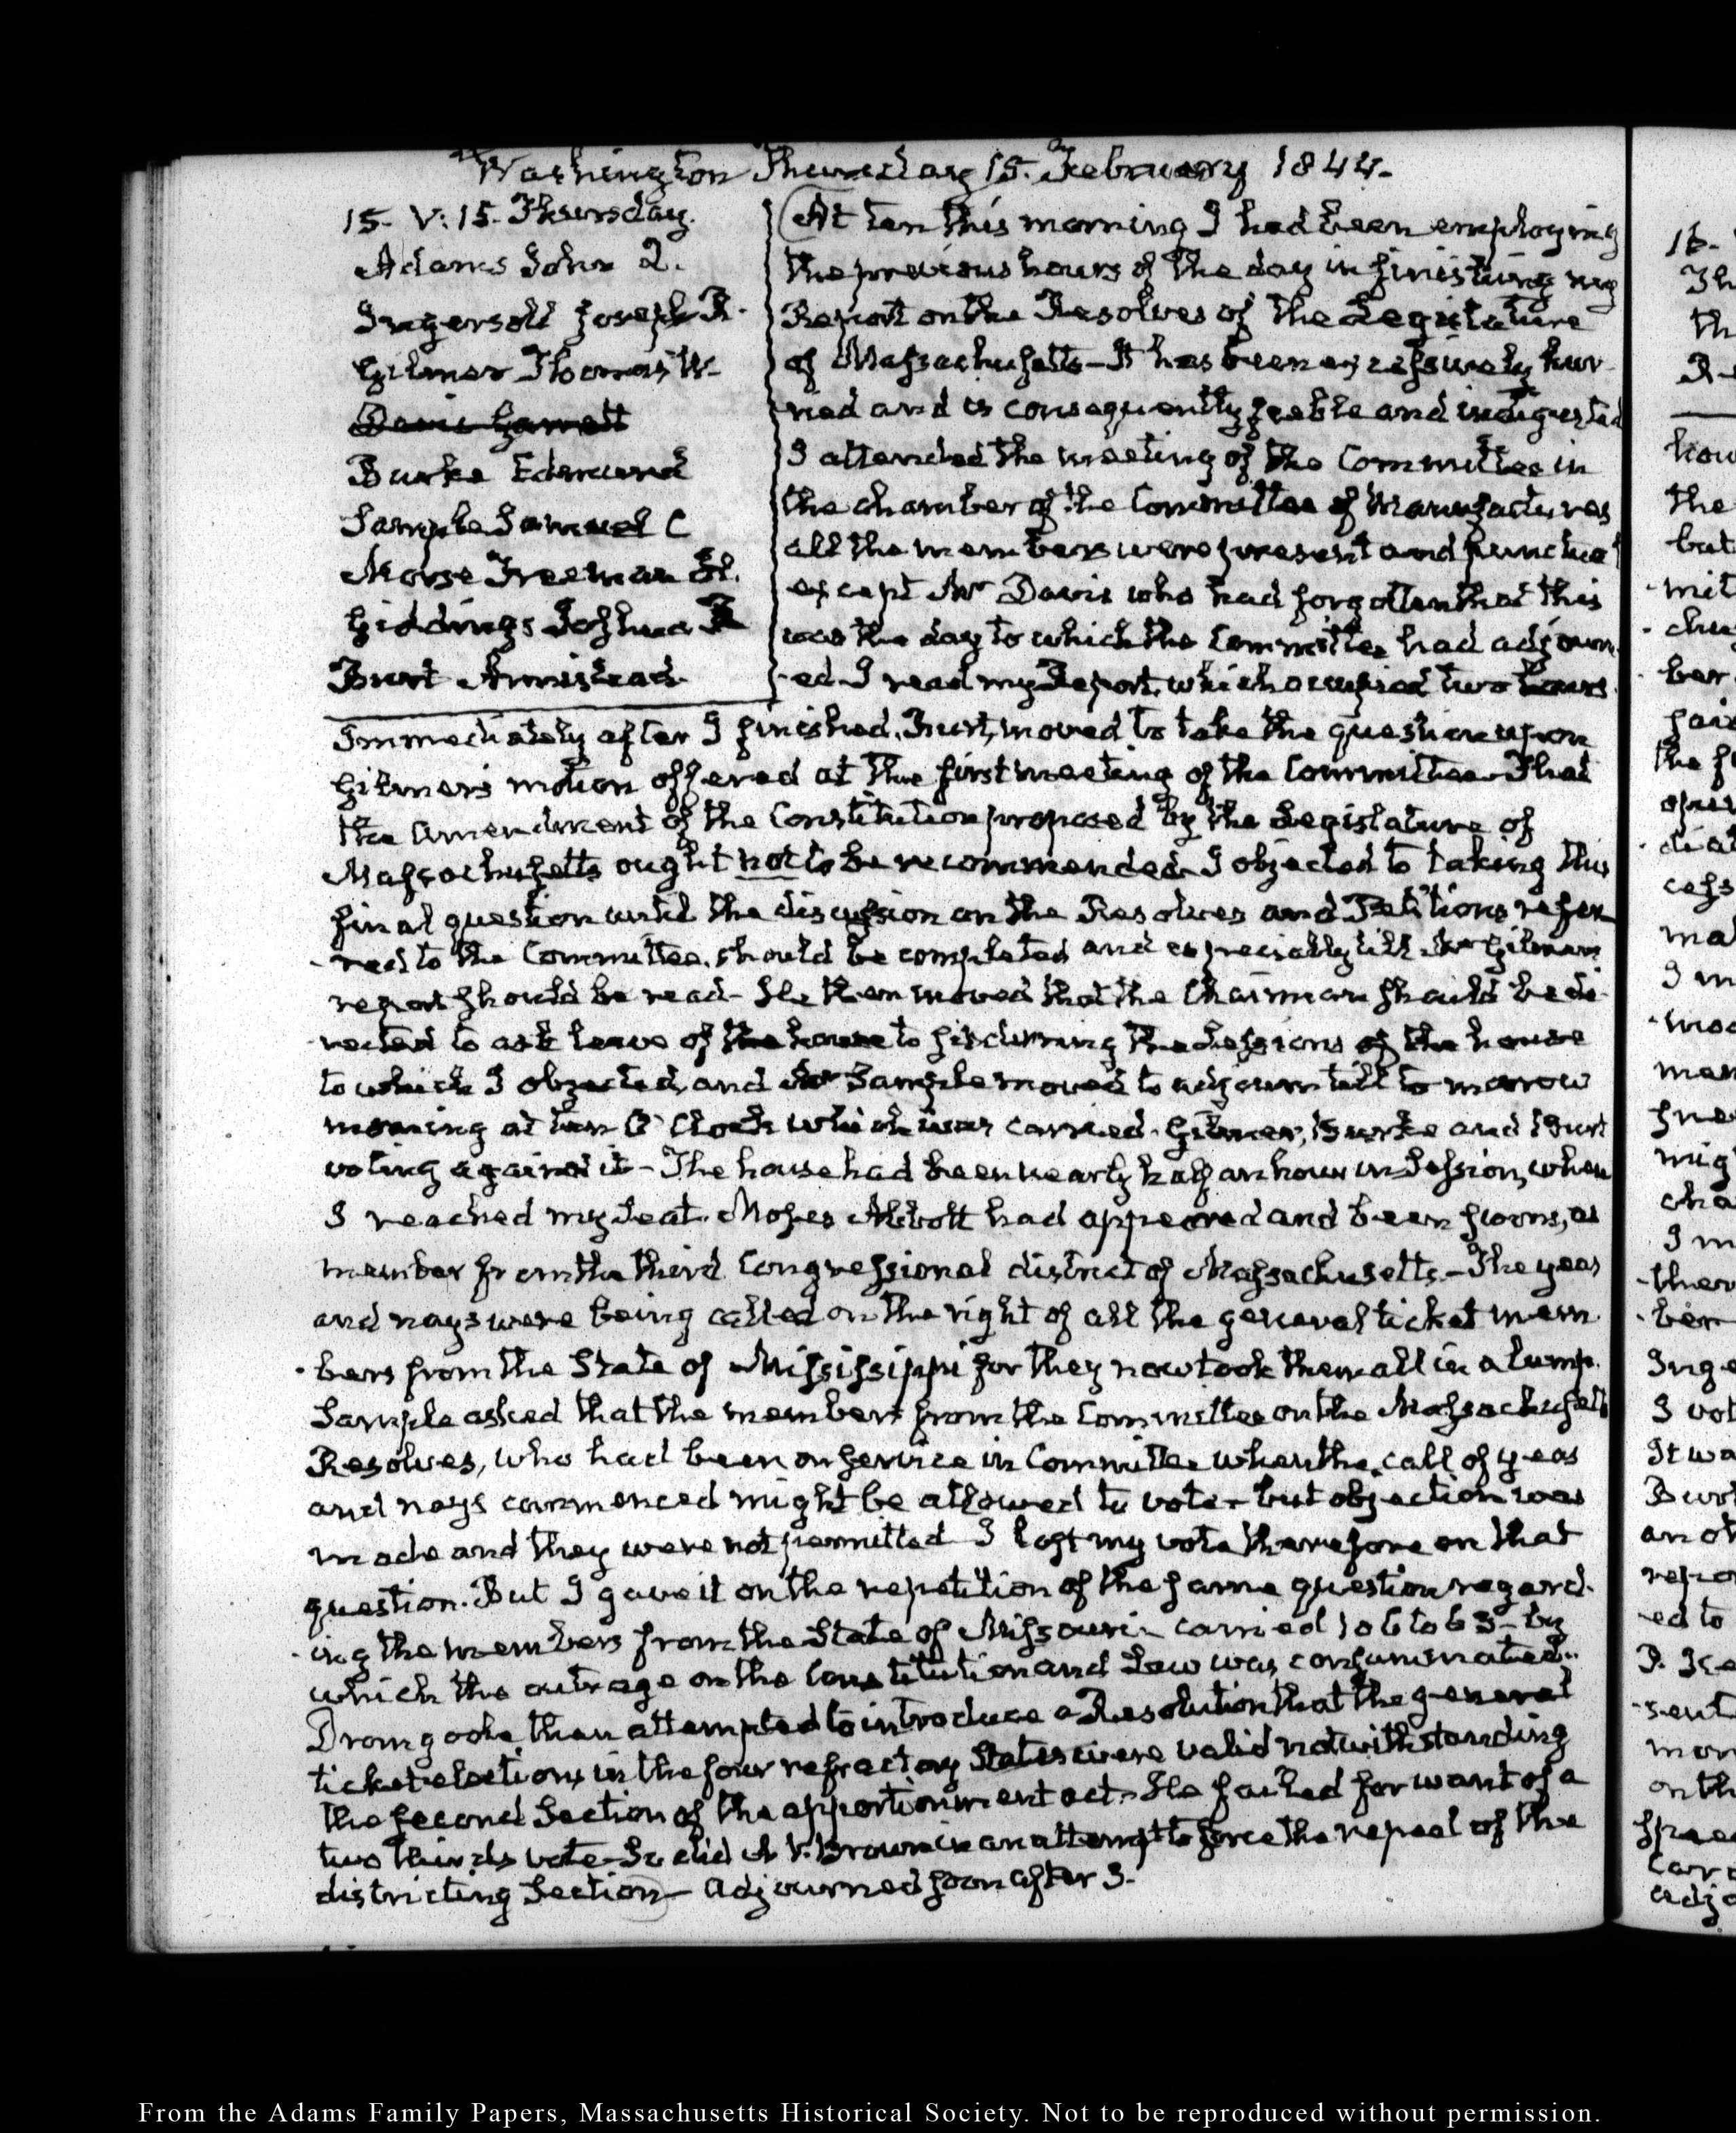 Washington Thursday 15. February 1844.
15. V:15. Thursday.
Adams John Q.
Ingersoll Joseph R.
Gilmer Thomas W.
Davis Garrett
Burke Edmund
Sample Samuel C
Morse Freeman H.
Giddings Joshua R
Burt Armistead.
At ten this morning I had been employing
the previous hours of the day in finishing my
Report on the Resolves of the Legislature
of Massachusetts – It has been excessively hur-
ried and is consequently feeble and indigested
I attended the meeting of the Committee in
the chamber of the Committee of Manufactures
all the members were present and punctual
except Mr Davis who had forgotten that this
was the day to which the Committee had adjourn-
-ed. I read my Report, which occupied two hours.
Immediately after I finished, Burt, moved to take the question upon
Gilmer's motion offered at the first meeting of the Committee. That
the Amendment of the Constitution proposed by the Legislature of
Massachusetts ought not to be recommended. I objected to taking this
final question until the discussion on the Resolves and Petitions refer-
-red to the Committee, should be completed and especially till Mr Gilmer's
report should be read – He then moved that the Chairman should be di-
-rected to ask leave of the house to sit during the Sessions of the house
to which I objected, and Mr Sample moved to adjourn till to-morrow
morning at ten O'Clock which was carried. Gilmer, Burke and Burt
voting against it – The house had been nearly half an hour in Session, when
I reached my Seat. Moses Abbott had appeared and been sworn, as
member from the third Congressional district of Massachusetts. – The yeas
and nays were being called on the right of all the general ticket mem-
-bers from the State of Mississippi for they now took them all in a lump.
Sample asked that the members from the Committee on the Massachusetts
Resolves, who had been on service in Committee when the call of yeas
and nays commenced might be allowed to vote – but objection was
made and they were not permitted I lost my vote therefore on that
question. But I gave it on the repetition of the same question regard-
-ing the members from the State of Missouri – carried 106 to 63 – by
which the outrage on the Constitution and Law was consummated..
Dromgoole then attempted to introduce a Resolution that the general
ticket elections in the four refractory States were valid notwithstanding
the second Section of the apportionment act. He failed for want of a
two thirds vote – So did A. V. Brown in an attempt to force the repeal of the
districting Section – adjourned soon after 3.
From the Adams Family Papers, Massachusetts Historical Society. Not to be reproduced without permission.